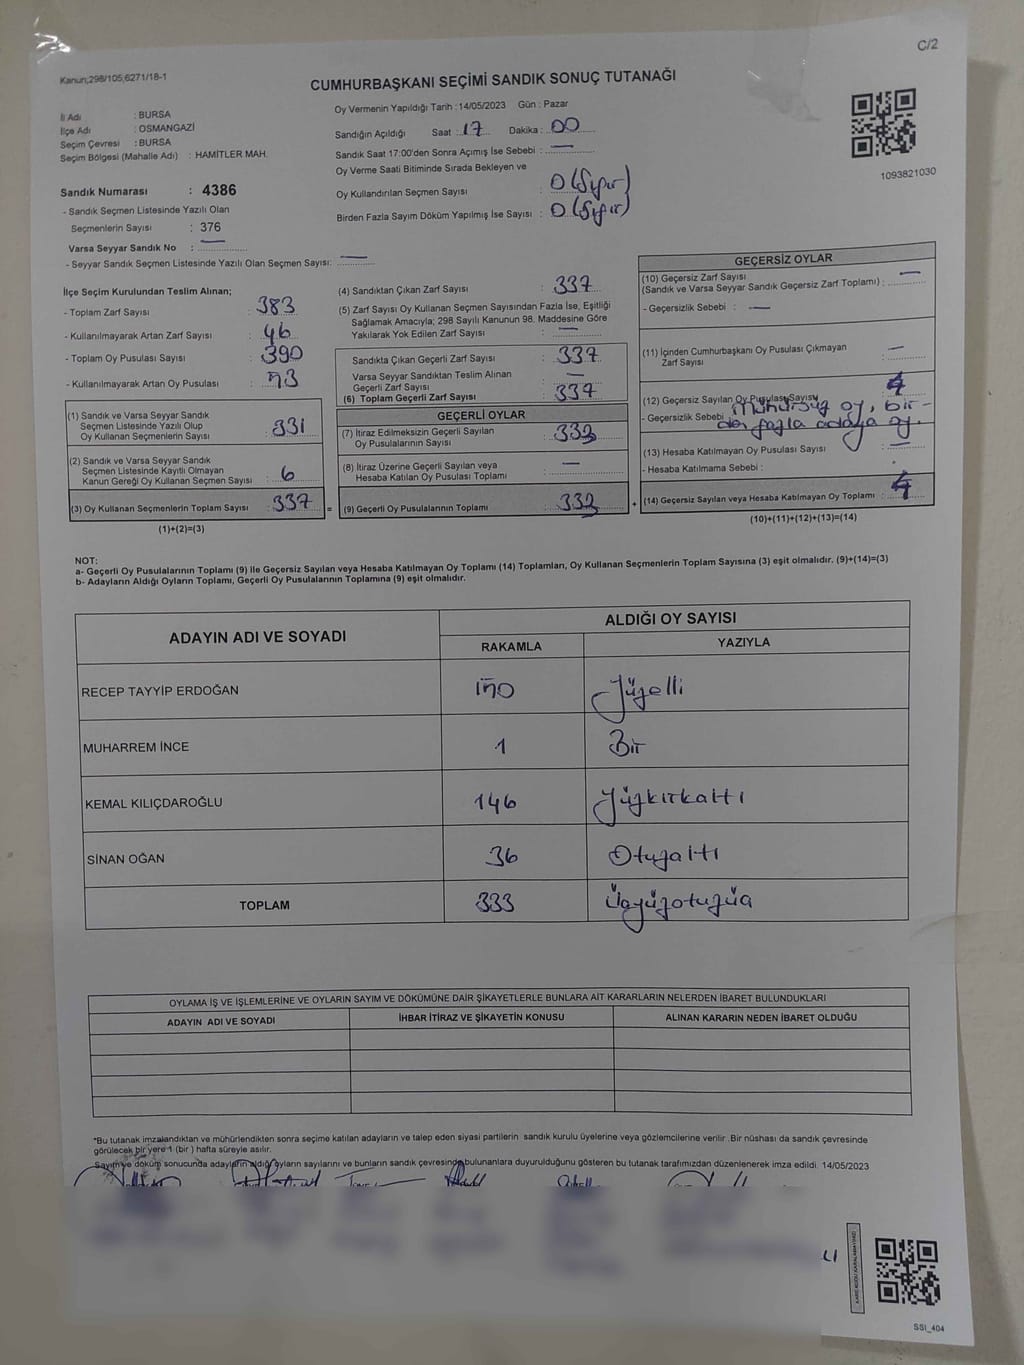 C/2
Kanun;298/105;6271/18-1
CUMHURBAŞKANI SEÇİMİ SANDIK SONUÇ TUTANAĞI
İl Adı : BURSA
İlçe Adı : OSMANGAZİ
Seçim Çevresi : BURSA
Seçim Bölgesi (Mahalle Adı) : HAMİTLER MAH.
Oy Vermenin Yapıldığı Tarih :14/05/2023 Gün : Pazar
Sandığın Açıldığı Saat : 17 Dakika : 00
Sandık Saat 17:00'den Sonra Açımış İse Sebebi : —
Oy Verme Saati Bitiminde Sırada Bekleyen ve
Oy Kullandırılan Seçmen Sayısı : 0 (Sıfır)
Birden Fazla Sayım Döküm Yapılmış İse Sayısı : 0 (Sıfır)
1093821030
Sandık Numarası : 4386
- Sandık Seçmen Listesinde Yazılı Olan
Seçmenlerin Sayısı : 376
Varsa Seyyar Sandık No : —
- Seyyar Sandık Seçmen Listesinde Yazılı Olan Seçmen Sayısı: —
İlçe Seçim Kurulundan Teslim Alınan;
- Toplam Zarf Sayısı : 383
- Kullanılmayarak Artan Zarf Sayısı : 46
- Toplam Oy Pusulası Sayısı : 390
- Kullanılmayarak Artan Oy Pusulası : 53
(1) Sandık ve Varsa Seyyar Sandık
Seçmen Listesinde Yazılı Olup
Oy Kullanan Seçmenlerin Sayısı : 331
(2) Sandık ve Varsa Seyyar Sandık
Seçmen Listesinde Kayıtlı Olmayan
Kanun Gereği Oy Kullanan Seçmen Sayısı : 6
(3) Oy Kullanan Seçmenlerin Toplam Sayısı : 337
(1)+(2)=(3)
(4) Sandıktan Çıkan Zarf Sayısı : 337
(5) Zarf Sayısı Oy Kullanan Seçmen Sayısından Fazla İse, Eşitliği
Sağlamak Amacıyla; 298 Sayılı Kanunun 98. Maddesine Göre
Yakılarak Yok Edilen Zarf Sayısı : —
Sandıkta Çıkan Geçerli Zarf Sayısı : 337
Varsa Seyyar Sandıktan Teslim Alınan
Geçerli Zarf Sayısı : —
(6) Toplam Geçerli Zarf Sayısı : 337
GEÇERLİ OYLAR
(7) İtiraz Edilmeksizin Geçerli Sayılan
Oy Pusulalarının Sayısı : 333
(8) İtiraz Üzerine Geçerli Sayılan veya
Hesaba Katılan Oy Pusulası Toplamı : —
= (9) Geçerli Oy Pusulalarının Toplamı : 333 +
GEÇERSİZ OYLAR
(10) Geçersiz Zarf Sayısı
(Sandık ve Varsa Seyyar Sandık Geçersiz Zarf Toplamı) : —
- Geçersizlik Sebebi : —
(11) İçinden Cumhurbaşkanı Oy Pusulası Çıkmayan
Zarf Sayısı : —
(12) Geçersiz Sayılan Oy Pusulası Sayısı : 4
- Geçersizlik Sebebi : Mühürsüz oy, bir-
den fazla adaya oy.
(13) Hesaba Katılmayan Oy Pusulası Sayısı : —
- Hesaba Katılmama Sebebi :
(14) Geçersiz Sayılan veya Hesaba Katılmayan Oy Toplamı : 4
(10)+(11)+(12)+(13)=(14)
NOT:
a- Geçerli Oy Pusulalarının Toplamı (9) ile Geçersiz Sayılan veya Hesaba Katılmayan Oy Toplamı (14) Toplamları, Oy Kullanan Seçmenlerin Toplam Sayısına (3) eşit olmalıdır. (9)+(14)=(3)
b- Adayların Aldığı Oyların Toplamı, Geçerli Oy Pusulalarının Toplamına (9) eşit olmalıdır.
ADAYIN ADI VE SOYADI
ALDIĞI OY SAYISI
RAKAMLA YAZIYLA
RECEP TAYYİP ERDOĞAN 150 Yüzelli
MUHARREM İNCE 1 Bir
KEMAL KILIÇDAROĞLU 146 Yüzkırkaltı
SİNAN OĞAN 36 Otuzaltı
TOPLAM 333 Üçyüzotuzüç
OYLAMA İŞ VE İŞLEMLERİNE VE OYLARIN SAYIM VE DÖKÜMÜNE DAİR ŞİKAYETLERLE BUNLARA AİT KARARLARIN NELERDEN İBARET BULUNDUKLARI
ADAYIN ADI VE SOYADI İHBAR İTİRAZ VE ŞİKAYETİN KONUSU ALINAN KARARIN NEDEN İBARET OLDUĞU
*Bu tutanak imzalandıktan ve mühürlendikten sonra seçime katılan adayların ve talep eden siyasi partilerin sandık kurulu üyelerine veya gözlemcilerine verilir .Bir nüshası da sandık çevresinde
görülecek bir yere 1 (bir ) hafta süreyle asılır.
Sayım ve döküm sonucunda adayların aldığı oyların sayılarını ve bunların sandık çevresinde bulunanlara duyurulduğunu gösteren bu tutanak tarafımızdan düzenlenerek imza edildi. 14/05/2023
SSI_404